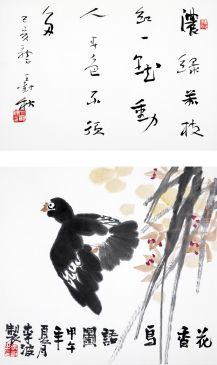 濃綠萬枝
紅一點動
人春色不須
多
己亥
花香鳥語圖甲午年夏月李波製